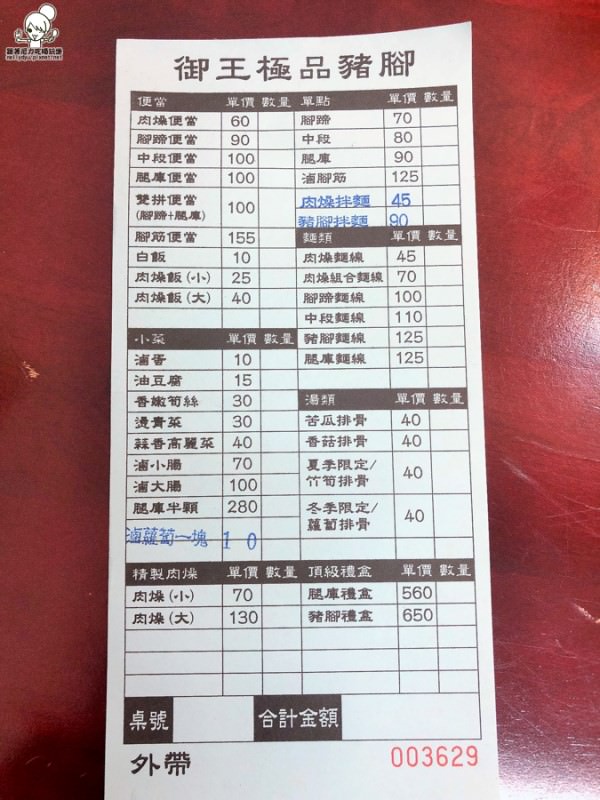 御王極品豬腳
便當 單價 數量
肉燥便當 60
腳蹄便當 90
中段便當 100
腿庫便當 100
雙拼便當
(腳蹄+腿庫) 100
腳筋便當 155
白飯 10
肉燥飯(小) 25
肉燥飯(大) 40
小菜 單價 數量
滷蛋 10
油豆腐 15
香嫩筍絲 30
燙青菜 30
蒜香高麗菜 40
滷小腸 70
滷大腸 100
腿庫半顆 280
滷蘿蔔一塊 10
精製肉燥 單價 數量
肉燥(小) 70
肉燥(大) 130
單點 單價 數量
腳蹄 70
中段 80
腿庫 90
滷腳筋 125
肉燥拌麵 45
豬腳拌麵 90
麵類 單價 數量
肉燥麵線 45
肉燥組合麵線 70
腳蹄麵線 100
中段麵線 110
豬腳麵線 125
腿庫麵線 125
湯類 單價 數量
苦瓜排骨 40
香菇排骨 40
夏季限定/
竹筍排骨 40
冬季限定/
蘿蔔排骨 40
頂級禮盒 單價 數量
腿庫禮盒 560
豬腳禮盒 650
桌號 合計金額
外帶 003629